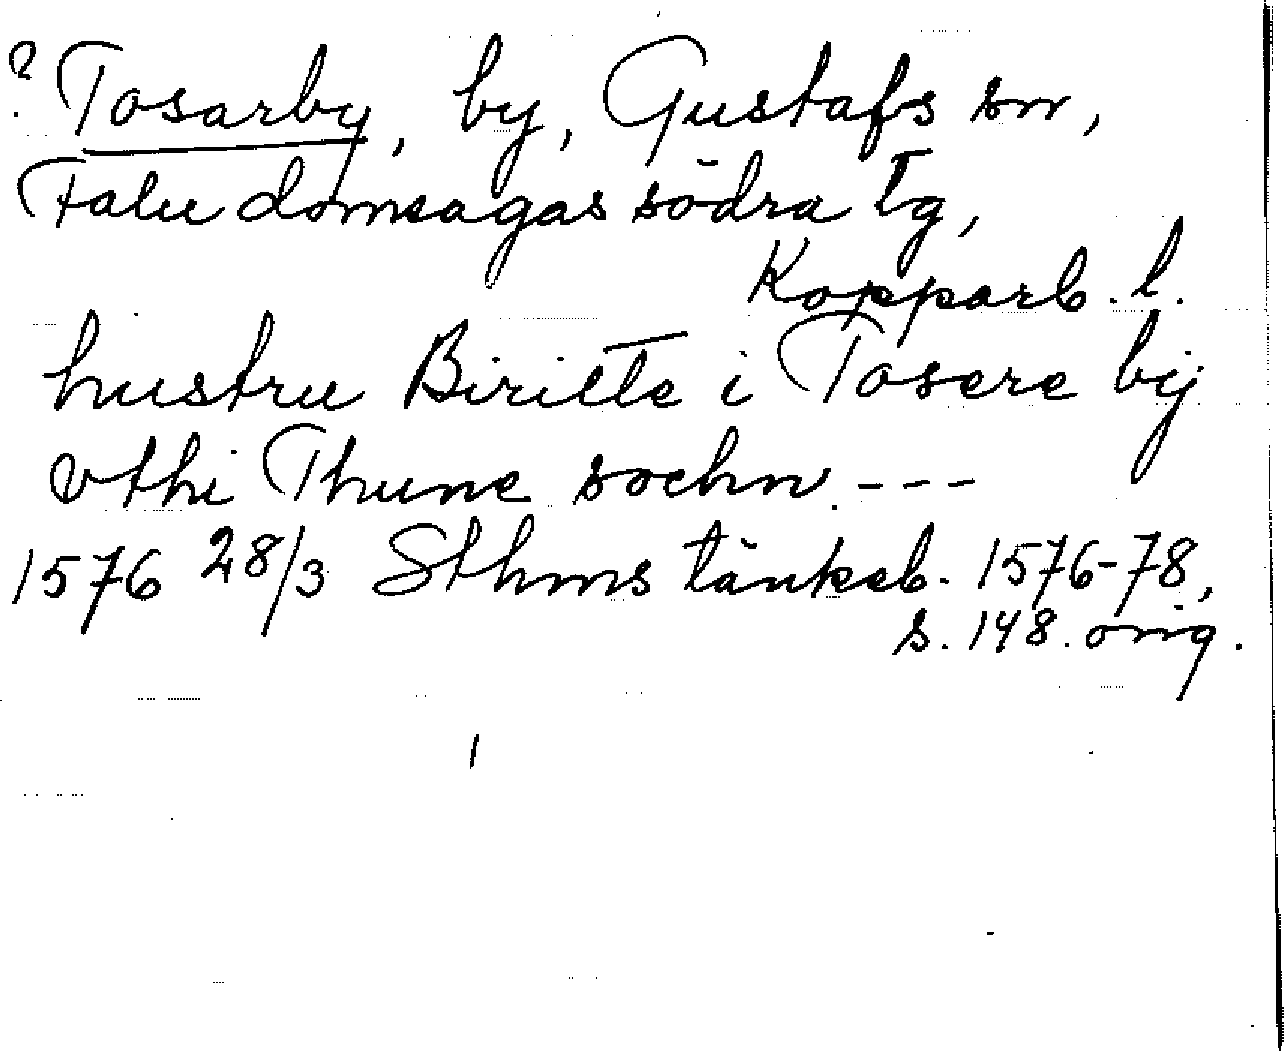 ? Tosarby, by, Gustafs sn,
Falu domsagas södra tg,
Kopparb. l.
hustru Biritte i Tosere bij
vthi Thune sochn. ---
1576 28/3 Sthms tänkeb. 1576-78,
s. 148. orig.